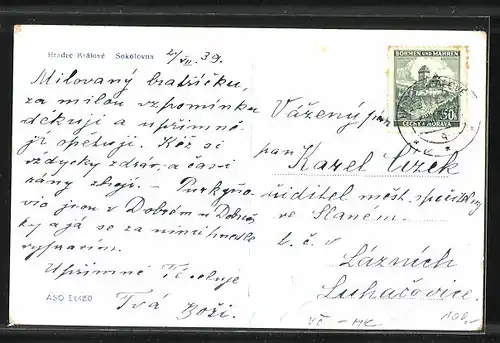 Hradec Králové Sokolovna
2/VII. 39.
Milovaný bratříčku,
za milou vzpomínku
děkuji a upřímně
ji opětuji. Kéž si
vždycky zdráv a časi
rány zhojí. – Purkyňo-
vio jsou v Dobrém u Dobruš-
ky a já se za nimi hnedle
vypravím.
Upřímně Tě celuje
Tvá Boži.
ASO
BÖHMEN UND MÄHREN
ČECHY A MORAVA
50h
Vážený pán
pan Karel
ředitel měst. spořitelny
ve Slaném
t. č. v
Lázních
Luhačovice.
VČ – HK
100,-